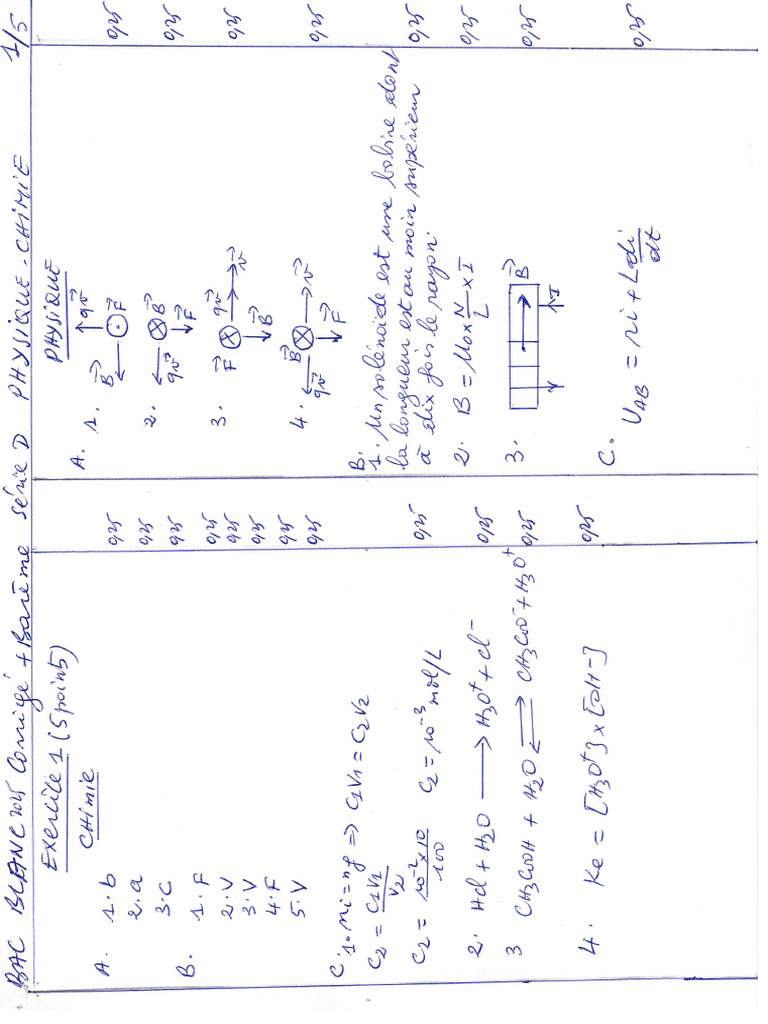 BAC BLANC 2025 Corrigé + Barème Série D PHYSIQUE-CHIMIE 1/5
Exercice 1 (5 points)
CHIMIE
A.
1. b 0,25
2. a 0,25
3. C 0,25
B.
1. F 0,25
2. V 0,25
3. V 0,25
4. F 0,25
5. V 0,25
C. 1. ni = nf => C1V1 = C2V2
C2 = C1V1/V2
C2 = 10^-2 x 10/100 C2 = 10^-3 mol/L 0,25
2. Hcl + H2O → H3O+ + Cl- 0,25
3 CH3COOH + H2O ⇌ CH3COO- + H3O+ 0,25
4. Ke = [H3O+] x [OH-] 0,25
PHYSIQUE
A. 1. B→ qv→ F→ 0,25
2. qv→ B→ F→ 0,25
3. F→ qv→ v→ B→ 0,25
4. B→ qv→ v→ F→ 0,25
B.
1. Un solénoïde est une bobine dont
la longueur est au moin supérieur
à dix fois le rayon. 0,25
2. B = μ0 x N/L x I 0,25
3. B→ I 0,25
C. UAB = ri + L di/dt 0,25